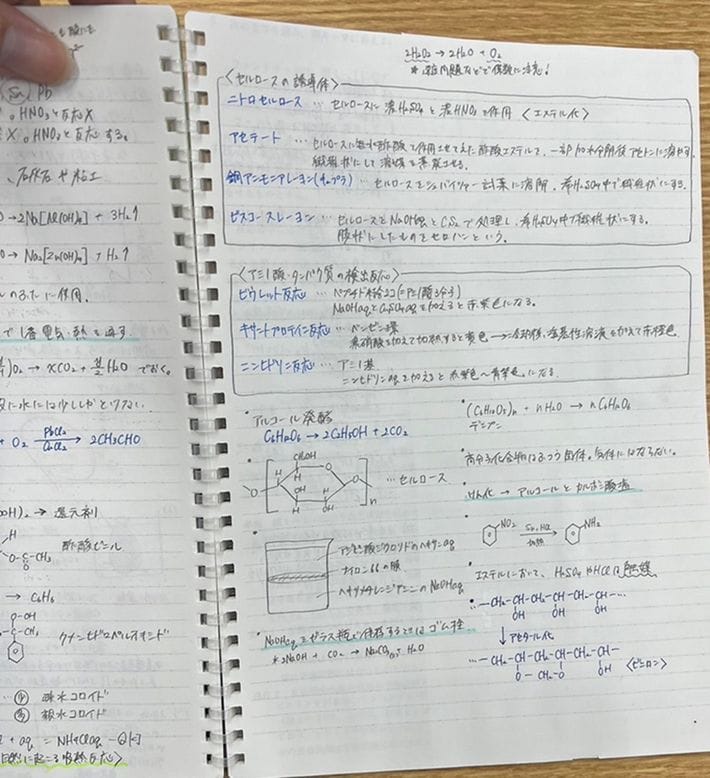 Sn Pb
HNO₃と反応X
X 。HNO₃と反応する。
石灰石や粘土
→2Na[Al(OH)₄] + 3H₂↑
→ Na₂[Zn(OH)₄] + H₂↑
のふたに使用。
で1番電気・熱を通す
O₂ → xCO₂ + H₂O でおく。
水には少ししかとけない。
+ O₂ PdCl₂ CuCl₂ → 2CH₃CHO
→ 還元剤
H
O-C-CH₃
O
酢酸ビニル
→ C₆H₆
O-OH
C-CH₃
クメンヒドロペルオキシド
疎水コロイド
親水コロイド
+ aq = NH₄Claq -Q[kJ]
2H₂O₂ → 2H₂O + O₂
係数に注意!
<セルロースの誘導体>
ニトロセルロース … セルロースに濃H₂SO₄と濃HNO₃を作用 <エステル化>
アセテート … セルロースに無水酢酸を作用させてえた酢酸エステルを、一部加水分解後アセトンに溶かす。
繊維状にして溶媒を蒸発させる。
銅アンモニアレーヨン(キュプラ) … セルロースをシュバイツァー試薬に溶解、希H₂SO₄中で繊維状にする。
ビスコースレーヨン … セルロースをNaOHaqとCS₂で処理し、希H₂SO₄中で繊維状にする。
膜状にしたものをセロハンという。
<アミノ酸・タンパク質の検出反応>
ビウレット反応 … ペプチド結合2コ(=アミノ酸3分子)
NaOHaqとCuSO₄aqを加えると赤紫色になる。
キサントプロテイン反応 … ベンゼン環
濃硝酸を加えて加熱すると黄色 → 冷却後、塩基性溶液を加えて赤橙色
ニンヒドリン反応 … アミノ基
ニンヒドリンaqを加えると赤紫色〜青紫色になる。
アルコール発酵
C₆H₁₂O₆ → 2C₂H₅OH + 2CO₂
CH₂OH
H O
O H
OH H
H OH
n
…セルロース
アジピン酸ジクロリドのヘキサンaq
ナイロン66の膜
ヘキサメチレンジアミンのNaOHaq
NaOHaqをガラス瓶で保存するときはゴム栓
※2NaOH + CO₂ → Na₂CO₃ + H₂O
(C₆H₁₀O₅)n + nH₂O → nC₆H₁₂O₆
デンプン
高分子化合物はふつう固体。気体にはならない。
けん化 → アルコールとカルボン酸塩
NO₂ Sn, HCl 加熱 → NH₂
エステルにおいて、H₂SO₄やHClは触媒
…-CH₂-CH-CH₂-CH-CH₂-CH-…
OH OH OH
↓アセタール化
…-CH₂-CH-CH₂-CH-CH₂-CH-
O-CH₂-O OH <ビニロン>